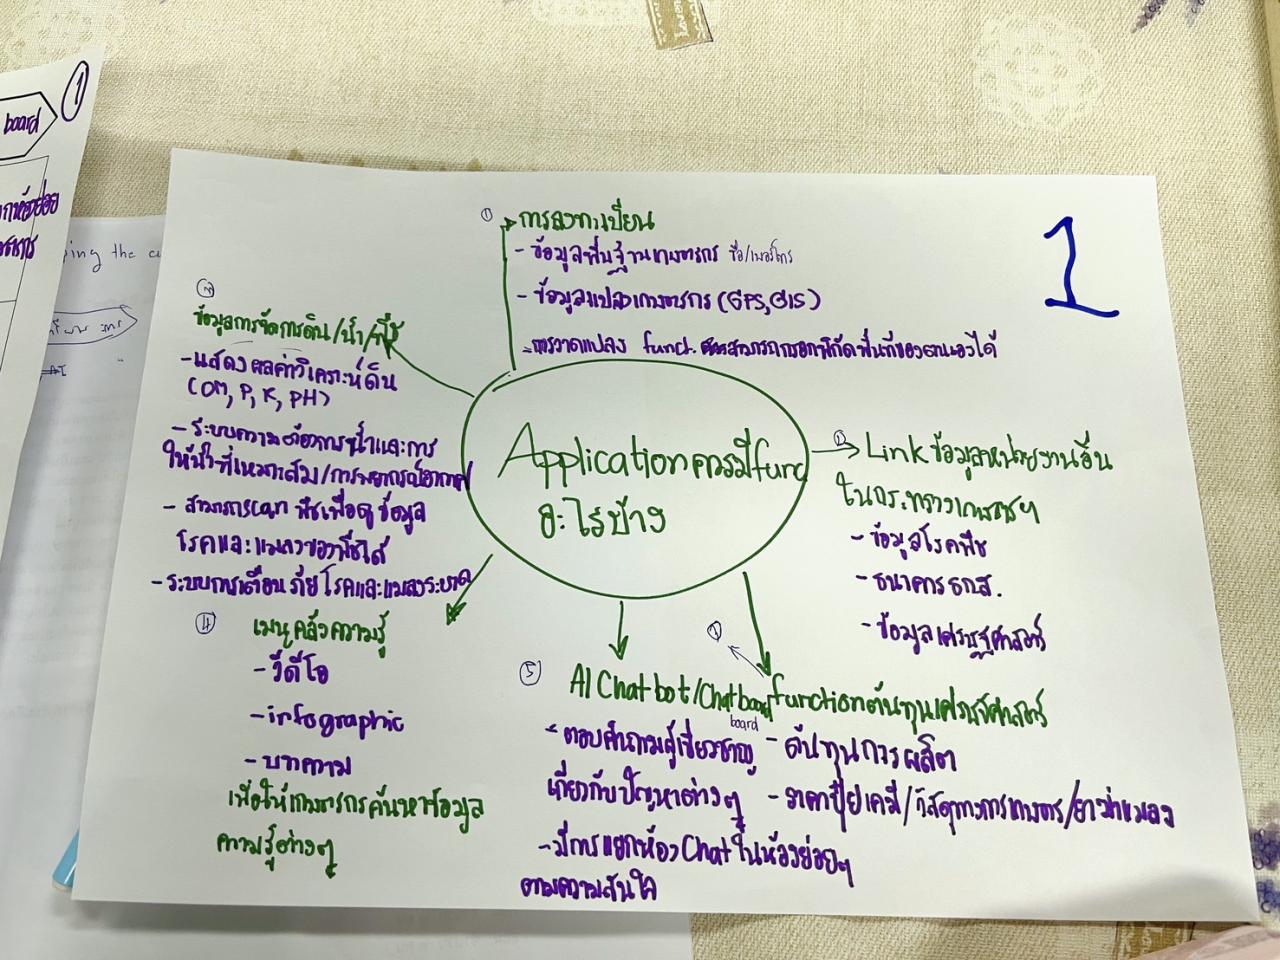 1
① การลงทะเบียน
- ข้อมูลพื้นฐานเกษตรกร ชื่อ/เบอร์โทร
- ข้อมูลแปลงเกษตรกร (GPS, GIS)
- การวาดแปลง funct. สามารถกรอกพิกัดพื้นที่ของตนเองได้
Application ควรมี func
อะไรบ้าง
ข้อมูลการจัดการดิน/น้ำ/พืช
- แสดงผลค่าวิเคราะห์ดิน
(OM, P, K, PH)
- ระบบความต้องการน้ำและการ
ให้น้ำที่เหมาะสม/การพยากรณ์อากาศ
- สามารถ scan พืชเพื่อดูข้อมูล
โรคและแมลงของพืชได้
- ระบบการเตือนภัยโรคและแมลงระบาด
Link ข้อมูลหน่วยงานอื่น
ในกระทรวงเกษตรฯ
- ข้อมูลโรคพืช
- ธนาคาร ธกส.
- ข้อมูลเศรษฐศาสตร์
④ เมนูคลังความรู้
- วีดีโอ
- infographic
- บทความ
เพื่อให้เกษตรกรค้นหาข้อมูล
ความรู้ต่างๆ
⑤ AI Chatbot/Chatboard
board
- ตอบคำถามผู้เชี่ยวชาญ
เกี่ยวกับปัญหาต่างๆ
- มีการแยกห้อง Chat ในห้องย่อยๆ
ตามความสนใจ
function ต้นทุนเศรษฐศาสตร์
- ต้นทุนการผลิต
- ราคาปุ๋ยเคมี/วัสดุทางการเกษตร/ยาฆ่าแมลง
1
board
ping the